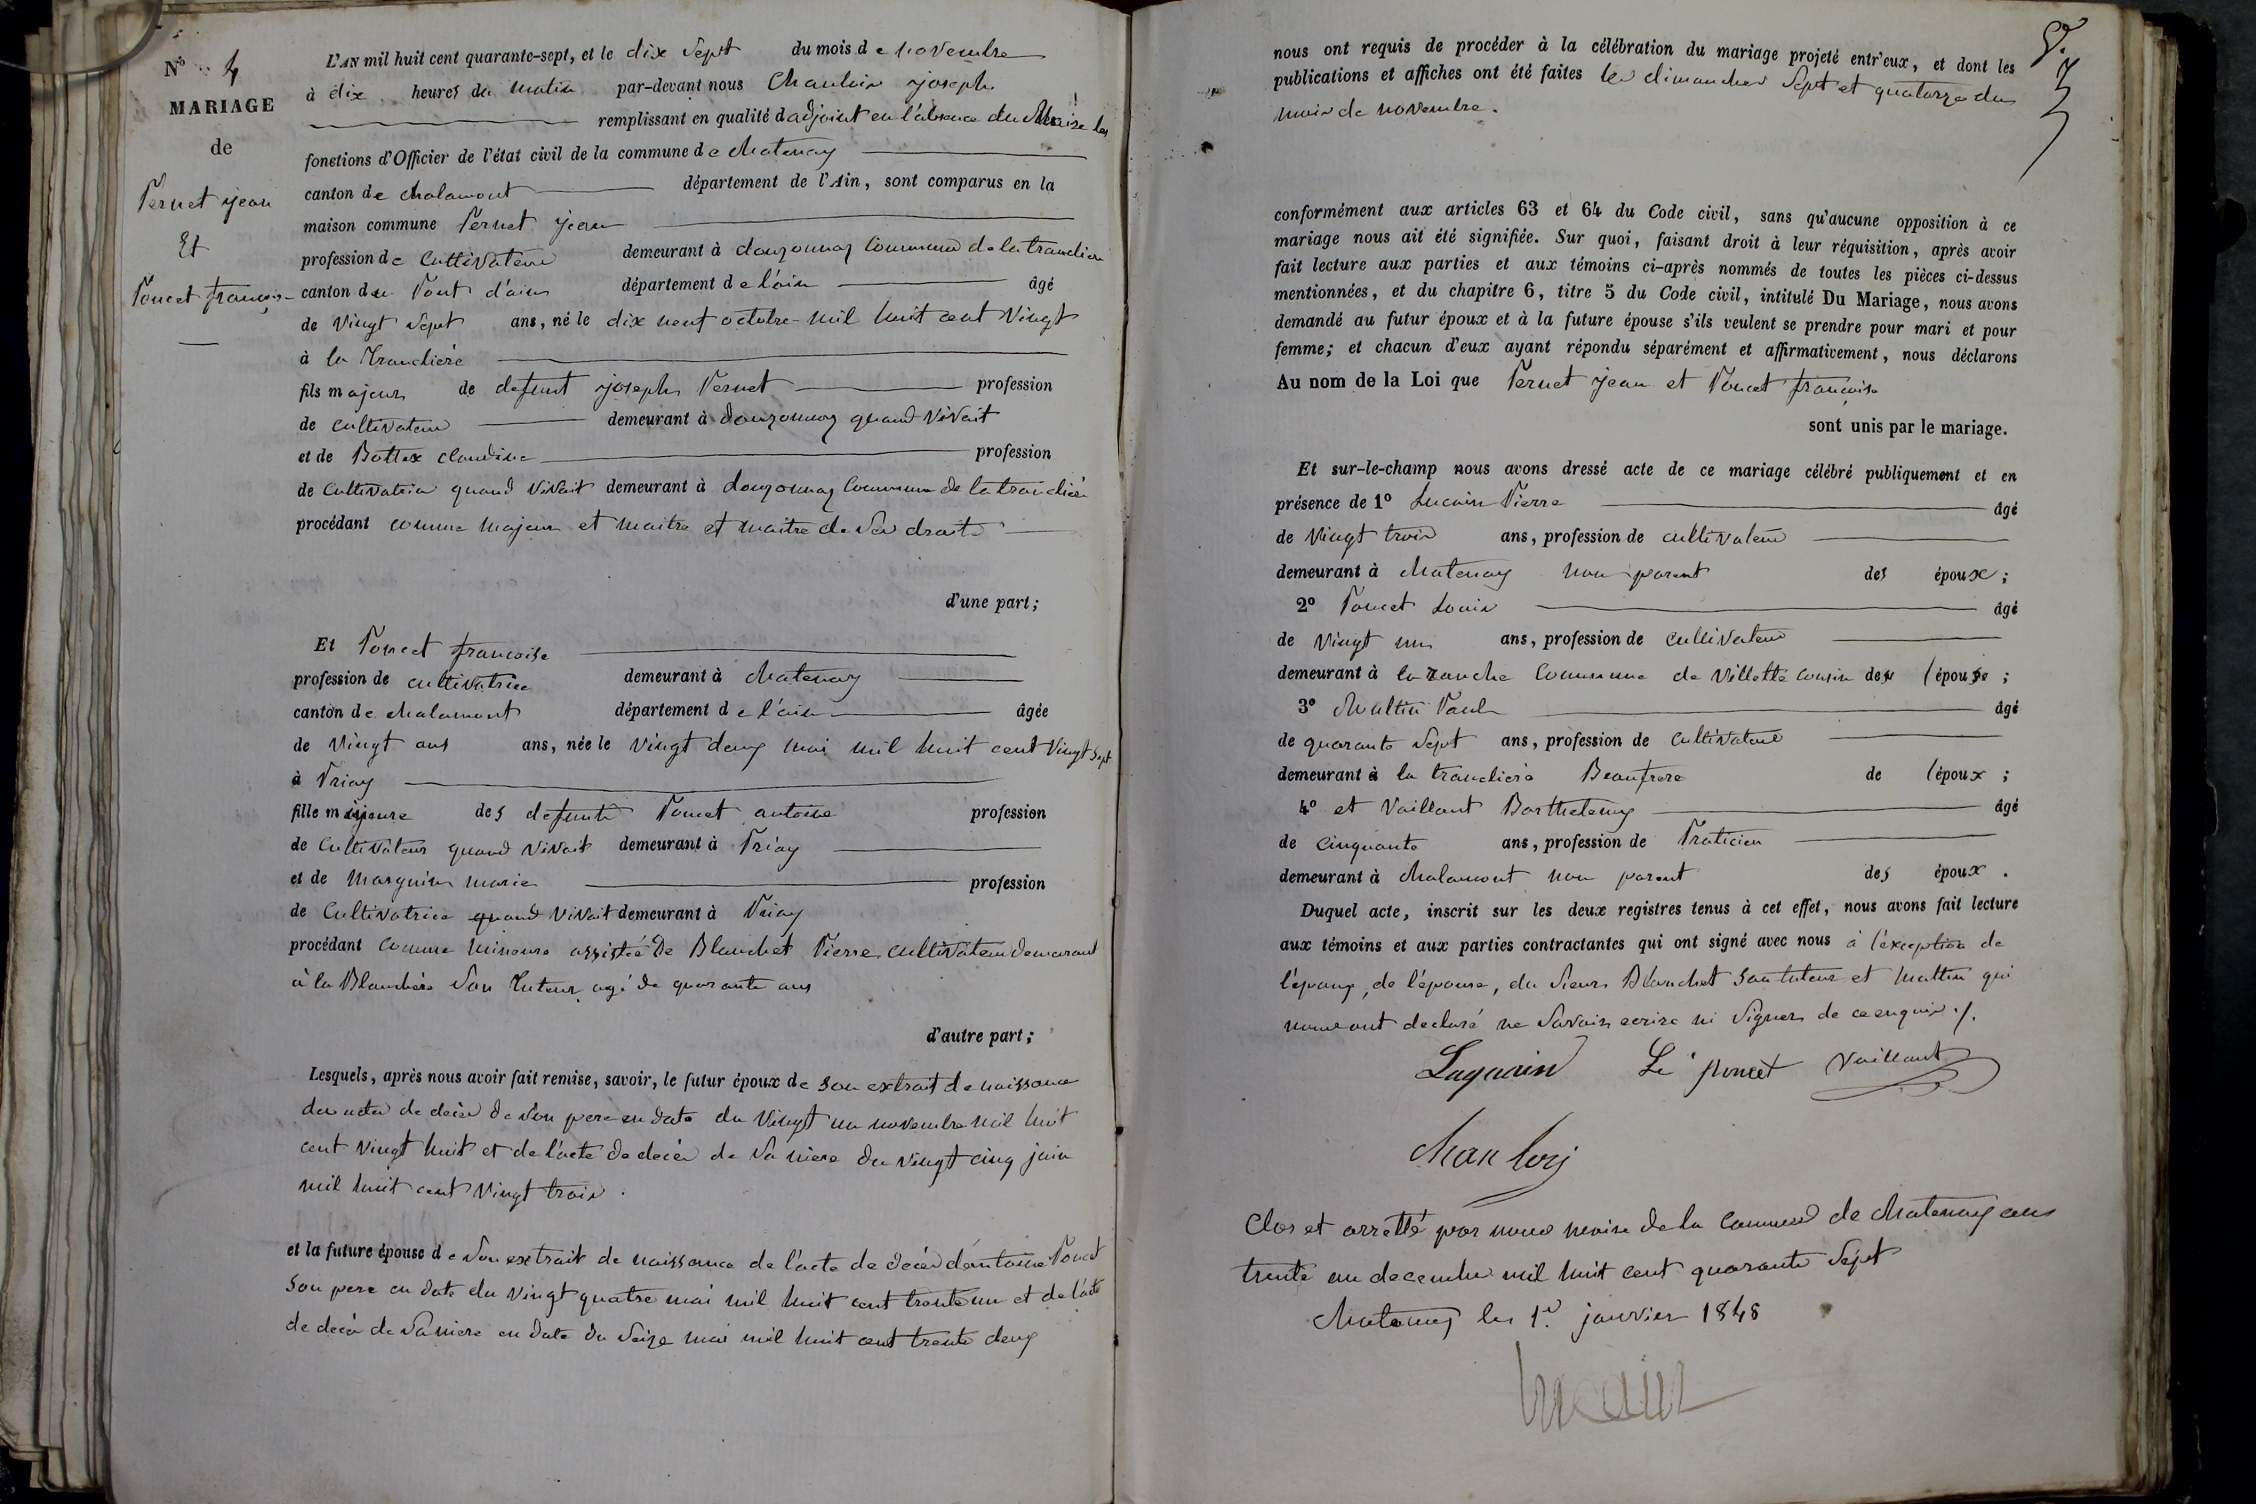 N° 4
MARIAGE
de
Pernet jean
Et
Poncet françoise
L'AN mil huit cent quarante-sept, et le dix Sept du mois de novembre
à dix heures du matin par-devant nous Chanloin joseph
remplissant en qualité d'adjoint en l'absence du Maire les
fonctions d'Officier de l'état civil de la commune de chatenay
canton de chalamont département de l'Ain, sont comparus en la
maison commune Pernet jean
profession de cultivateur demeurant à douzonnay Commune de la tranclière
canton du Pont d'ain département de l'ain âgé
de Vingt Sept ans, né le dix neuf octobre mil huit cent Vingt
à la Tranclière
fils majeur de defunt joseph Pernet profession
de cultivateur demeurant à douzonnay quand vivait
et de Bottex claudine profession
de cultivatrice quand vivait demeurant à douzonnay Commune de la tranclière
procédant comme majeur et maitre et maitre de ses droits
d'une part;
Et Poncet francoise
profession de cultivatrice demeurant à chatenay
canton de chalamont département de l'ain âgée
de Vingt ans ans, née le vingt deux mai mil huit cent Vingt Sept
à Priay
fille mineure des defunts Poncet antoine profession
de Cultivateur quand vivait demeurant à Priay
et de Marguin marie profession
de Cultivatrice quand vivait demeurant à Priay
procédant comme mineure assistée de Blanchet Pierre cultivateur demeurant
à la Blanchère Son tuteur agé de quarante ans
d'autre part;
Lesquels, après nous avoir fait remise, savoir, le futur époux de son extrait de naissance
des actes de décès de son père en date du Vingt un novembre mil huit
cent vingt huit et de l'acte de décès de Sa mère du Vingt cinq juin
mil huit cent Vingt trois.
et la future épouse de Son extrait de naissance de l'acte de décès d'antoine Poncet
son père en date du Vingt quatre mai mil huit cent trente un et de l'acte
de décès de Sa mère en date du Seize mai mil huit cent trente deux
nous ont requis de procéder à la célébration du mariage projeté entr'eux, et dont les
publications et affiches ont été faites les dimanches Sept et quatorze du
mois de novembre.
conformément aux articles 63 et 64 du Code civil, sans qu'aucune opposition à ce
mariage nous ait été signifiée. Sur quoi, faisant droit à leur réquisition, après avoir
fait lecture aux parties et aux témoins ci-après nommés de toutes les pièces ci-dessus
mentionnées, et du chapitre 6, titre 5 du Code civil, intitulé Du Mariage, nous avons
demandé au futur époux et à la future épouse s'ils veulent se prendre pour mari et pour
femme; et chacun d'eux ayant répondu séparément et affirmativement, nous déclarons
Au nom de la Loi que Pernet jean et Poncet françoise
sont unis par le mariage.
Et sur-le-champ nous avons dressé acte de ce mariage célébré publiquement et en
présence de 1° Lucain Pierre âgé
de Vingt trois ans, profession de cultivateur
demeurant à chatenay non parent des époux;
2° Poncet Louis âgé
de Vingt un ans, profession de cultivateur
demeurant à la ranche Commune de Villette cousin de l'épouse;
3° Multin Paul âgé
de quarante Sept ans, profession de cultivateur
demeurant à la tranclière Beaufrere de l'époux;
4° et Vaillant Barthelemy âgé
de cinquante ans, profession de Praticien
demeurant à chalamont non parent des époux.
Duquel acte, inscrit sur les deux registres tenus à cet effet, nous avons fait lecture
aux témoins et aux parties contractantes qui ont signé avec nous à l'exception de
l'époux, de l'épouse, du Sieur Blanchet Son tuteur et Multin qui
nous ont declaré ne Savoir ecrire ni Signer de ce enquis ./.
Luquain Ls poncet Vaillant
Clos et arretté par nous maire de la Commune de chatenay aux
trente un decembre mil huit cent quarante Sept
Chatenay les 1er janvier 1848
Lucain